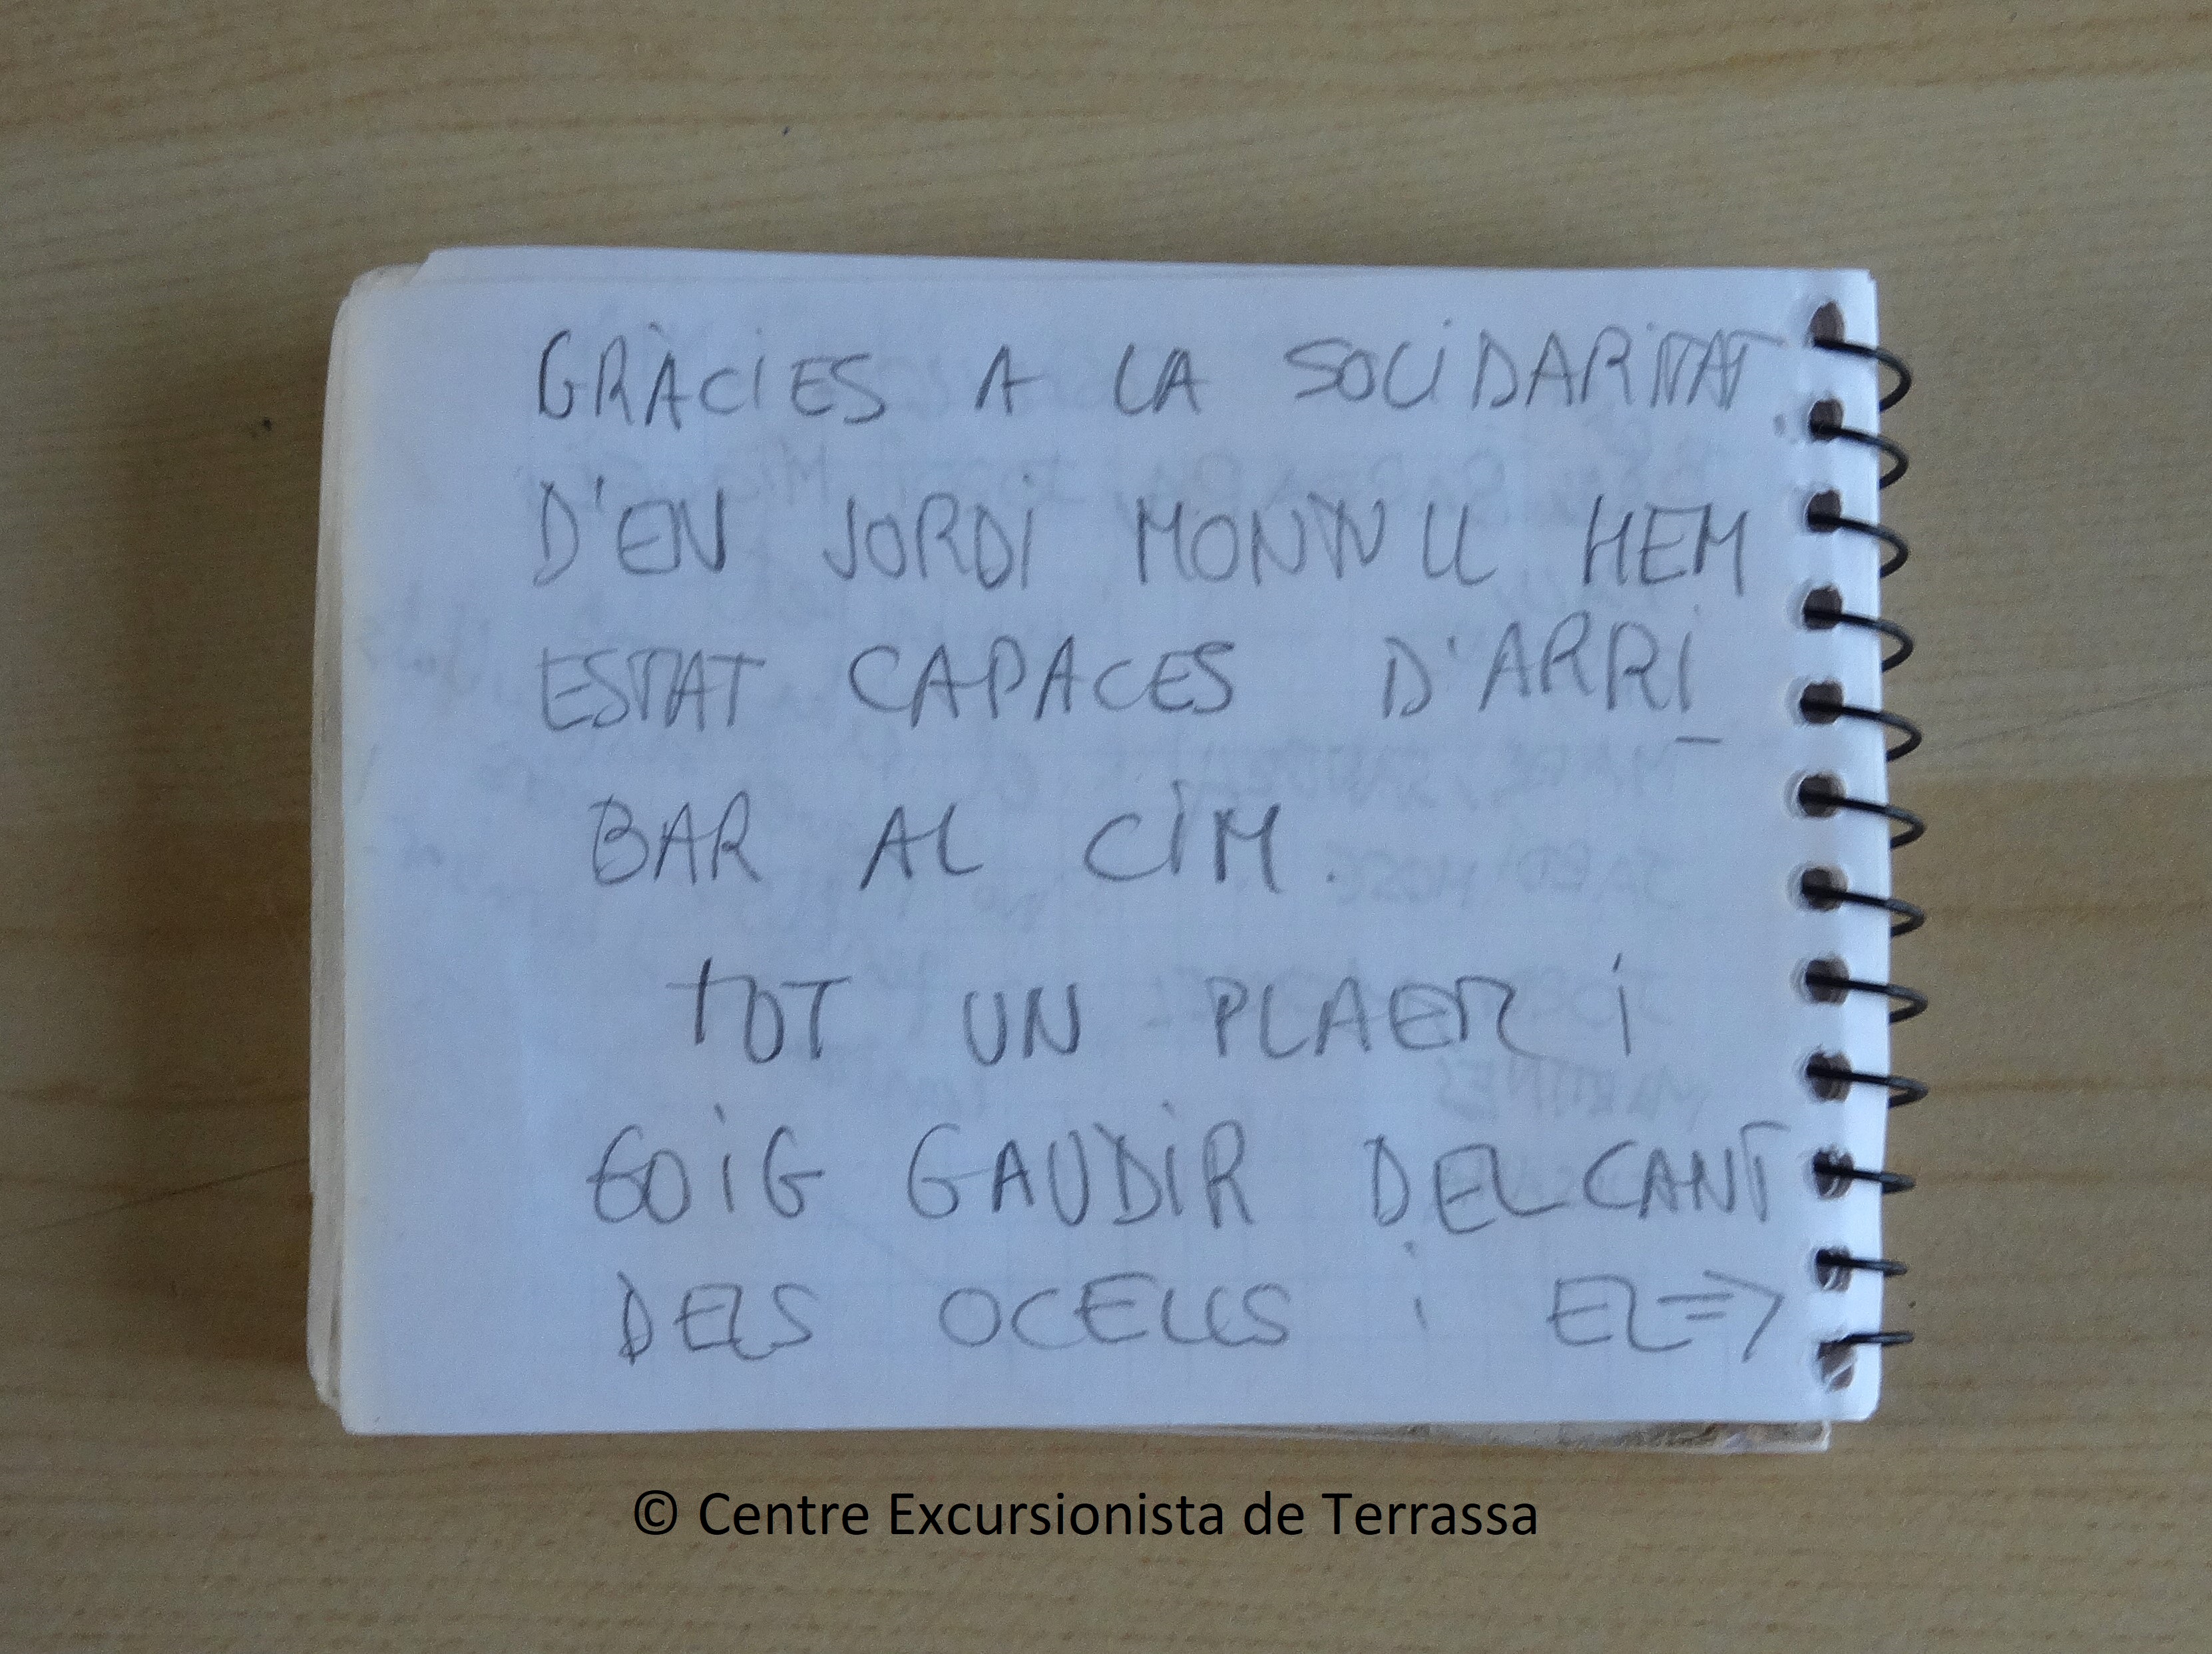 GRÀCiES A LA SOLiDARiTAT
D'EN JORDi MONTULL HEM
ESTAT CAPACES D'ARRi_
BAR AL CiM.
TOT UN PLAER i
GOiG GAUDiR DEL CANT
DELS OCELLS i EL⇒
© Centre Excursionista de Terrassa